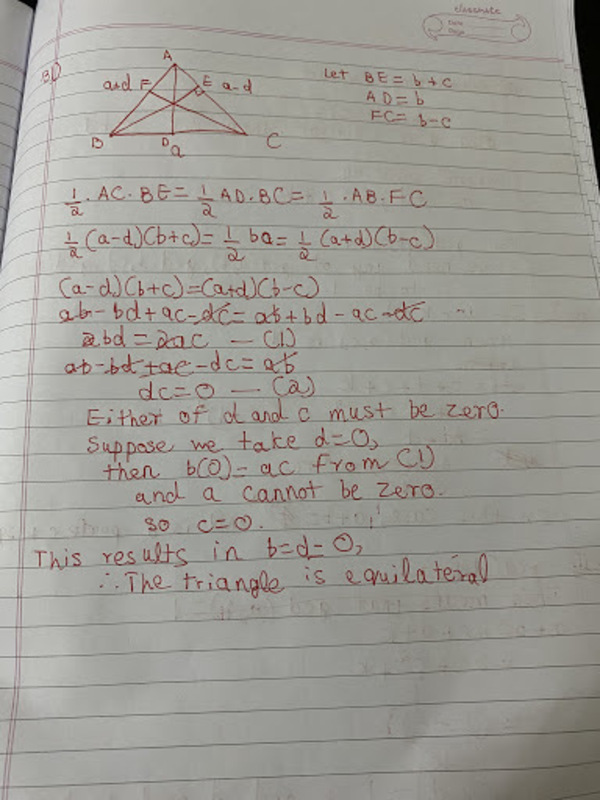 classmate
Date
Page
B1)
A
a+d F
E a-d
B
D
a
C
Let BE = b+c
AD = b
FC = b-c
1/2 · AC · BE = 1/2 AD · BC = 1/2 · AB · FC
1/2 (a-d)(b+c) = 1/2 ba = 1/2 (a+d)(b-c)
(a-d)(b+c) = (a+d)(b-c)
ab - bd + ac - dc = ab + bd - ac - dc
2bd = 2ac — (1)
ab - bd + ac - dc = ab
dc = 0 — (2)
Either of d and c must be zero.
Suppose we take d=0,
then b(0) = ac from (1)
and a cannot be zero.
so c=0.
This results in b=d=0,
∴ The triangle is equilateral